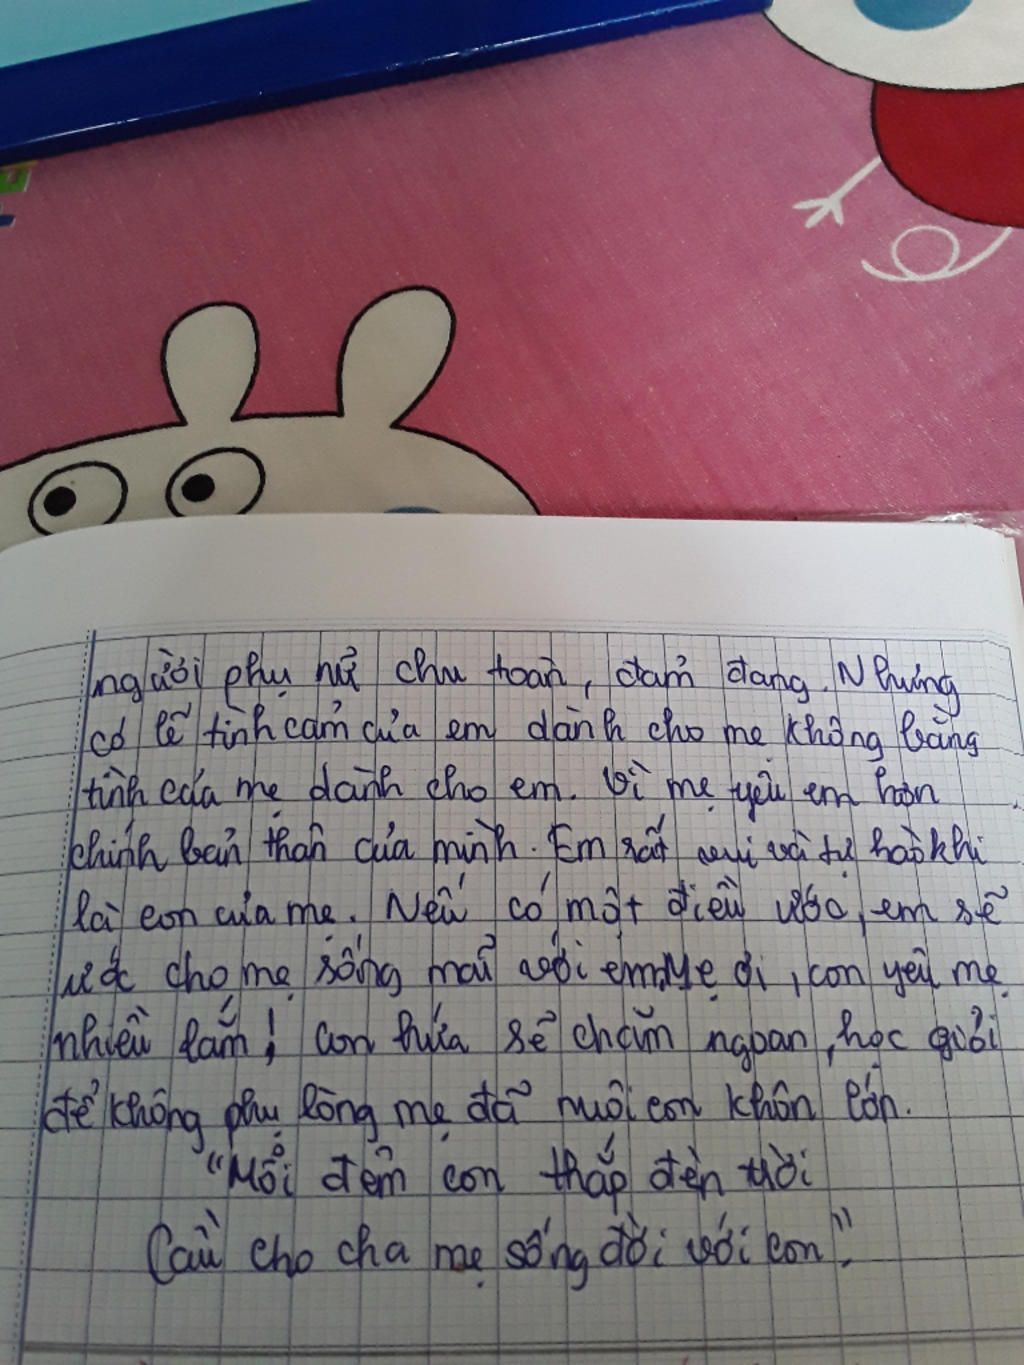 người phụ nữ chu toàn, đảm đang. Nhưng
có lẽ tình cảm của em dành cho mẹ không bằng
tình của mẹ dành cho em. Vì mẹ yêu em hơn
chính bản thân của mình. Em rất vui và tự hào khi
là con của mẹ. Nếu có một điều ước, em sẽ
ước cho mẹ sống mãi với em. Mẹ ơi, con yêu mẹ
nhiều lắm! Con hứa sẽ chăm ngoan, học giỏi
để không phụ lòng mẹ đã nuôi con khôn lớn.
"Mỗi đêm con thắp đèn trời
Cầu cho cha mẹ sống đời với con".